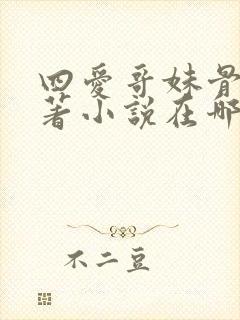 四愛哥妹骨
著小説在哪
不二豆